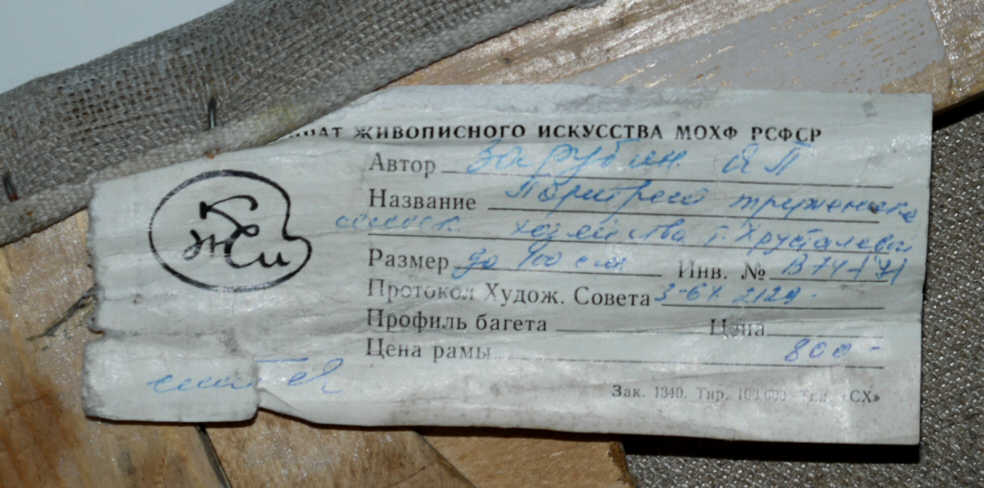 ИНАТ ЖИВОПИСНОГО ИСКУССТВА МОХФ РСФСР
Автор Зарубин ЯП
Название Портрет труженика
сельск. хозяйства т. Хрусталевой
КЖИ
Размер до 400 см Инв. № В 74-(7)
Протокол Худож. Совета 3-64 2129.
Профиль багета Цена
Цена рамы 800-
Зак. 1340. Тир. «СХ»